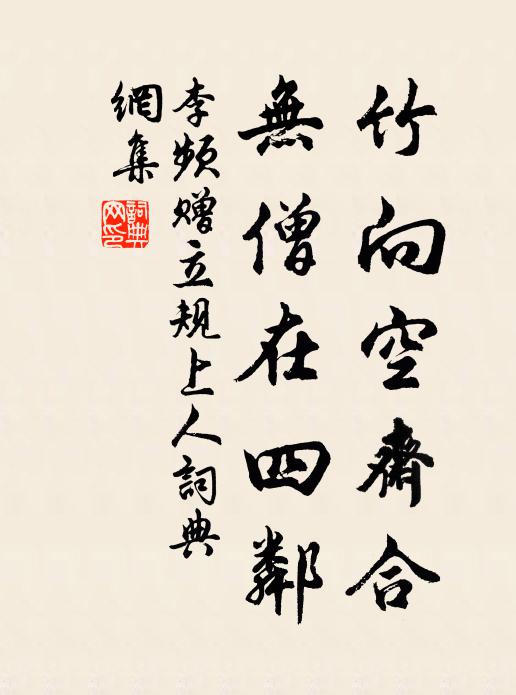 竹向空齋合
無僧在四鄰
李頻贈立規上人詞典
網集
詞典
网印